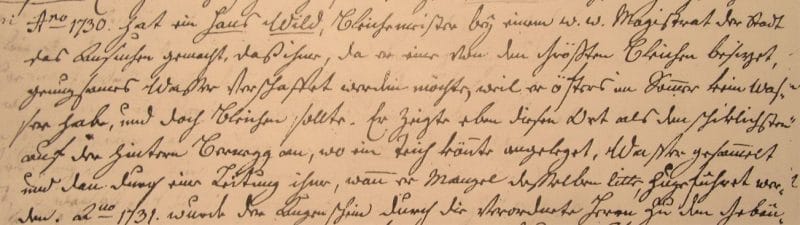 Aṅo 1730. hat ein Hans Wild, Bleichemeister beÿ einem w. w. Magistrat der Stadt
das Ansuchen gemacht, daß ihme, da er eine von den Größten Bleichen besizet,
genugsames Wasser verschaffet werden möchte, weil er öfters im Sommer kein Was-
ser habe, und doch Bleichen sollte. Er Zeigte eben diesen Ort als den schiklichsten
auf der hintern Bernegg an, wo ein Teich könnte angeleget, Wasser gesammelt
und dan durch eine Leitung ihme, wann er Mangel desselben litte zugeführet wer-
den. Aṅo 1731. wurde der Augenschein durch die verordnete Herren Zu den Gebäu-